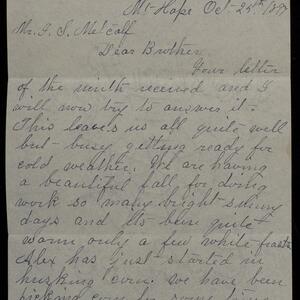 Mt-Hope Oct-25th 1897
Mr. G. S. Metcalf
Dear Brother
Your letter
of the ninth received and I
will now try to answer it.
This leaves us all quite well
but busy getting ready for
cold weather. We are having
a beautiful fall for doing
work so many bright shiny
days and its been quite
warm only a few white frosts
Alex has just started in
husking corn. we have been
picking corn